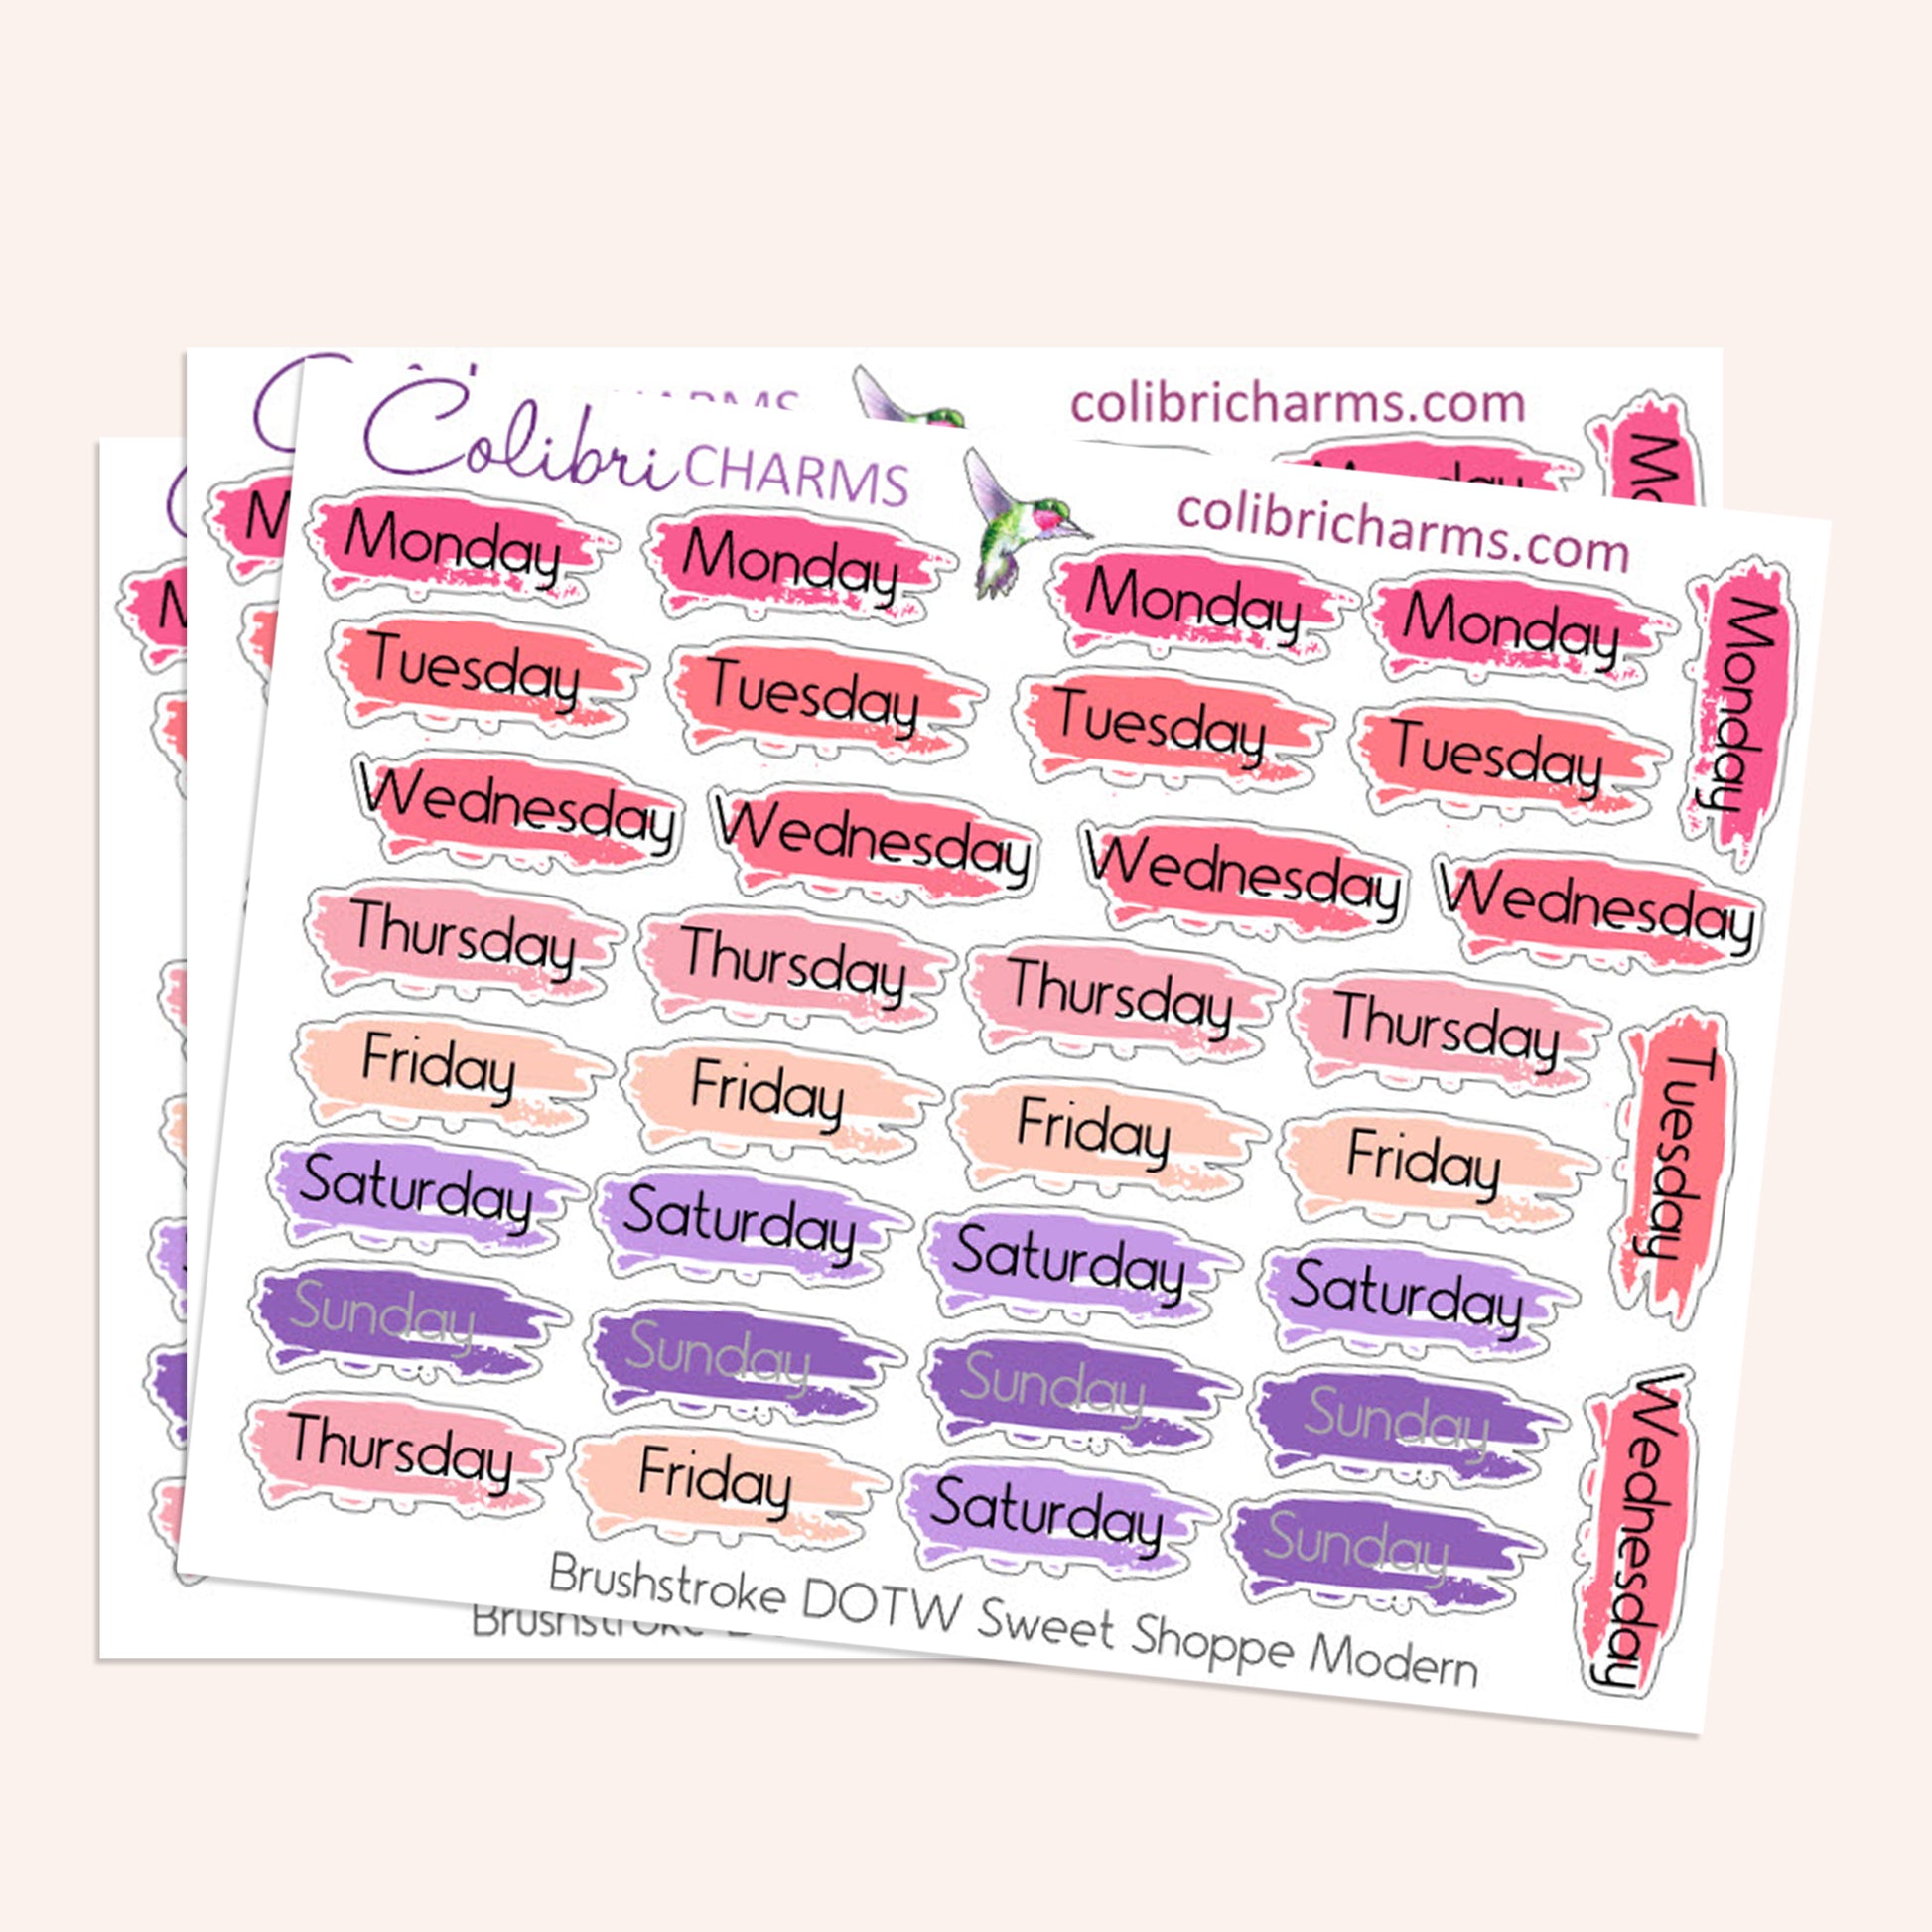 colibricharms.com
Colibri CHARMS
colibricharms.com
Monday Monday Monday Monday
Monday
Tuesday Tuesday Tuesday Tuesday
Wednesday Wednesday Wednesday Wednesday
Thursday Thursday Thursday Thursday
Tuesday
Friday Friday Friday Friday
Saturday Saturday Saturday Saturday
Sunday Sunday Sunday Sunday
Wednesday
Thursday Friday Saturday Sunday
Brushstroke DOTW Sweet Shoppe Modern